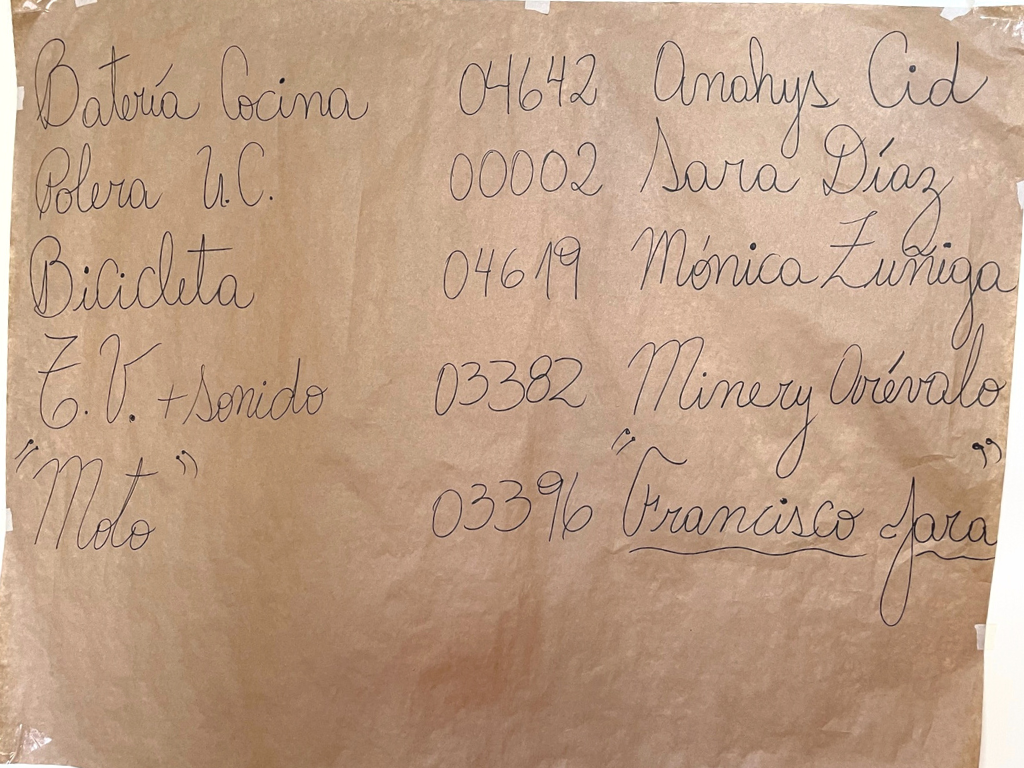 Batería Cocina 04642 Anahys Cid
Polera U.C. 00002 Sara Díaz
Bicicleta 04619 Mónica Zuñiga
T.V. + Sonido 03382 Minery Arévalo
"Moto" 03396 "Francisco Jara"